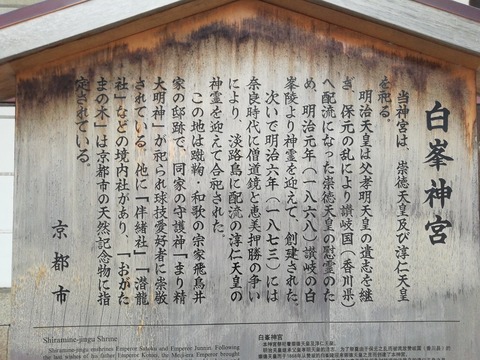 白峯神宮
当神宮は、崇徳天皇及び淳仁天皇
を祀る。
明治天皇は父孝明天皇の遺志を継
ぎ、保元の乱により讃岐国(香川県)
へ配流になった崇徳天皇の慰霊のた
め、明治元年(一八六八)讃岐の白
峯陵より神霊を迎えて、創建された。
次いで明治六年(一八七三)には
奈良時代に僧道鏡と恵美押勝の争い
により、淡路島に配流の淳仁天皇の
神霊を迎えて合祀された。
この地は蹴鞠・和歌の宗家飛鳥井
家の邸跡で、同家の守護神「まり精
大明神」が祀られ球技愛好者に崇敬
されている。他に「伴緒社」「潜龍
社」などの境内社があり、「おがた
まの木」は京都市の天然記念物に指
定されている。
京都市
Shiramine-jingu Shrine
Shiramine-jingu enshrines Emperor Sutoku and Emperor Junnin. Following
the last wishes of his father Emperor Komei, the Meiji-era Emperor brought
白峯神宮